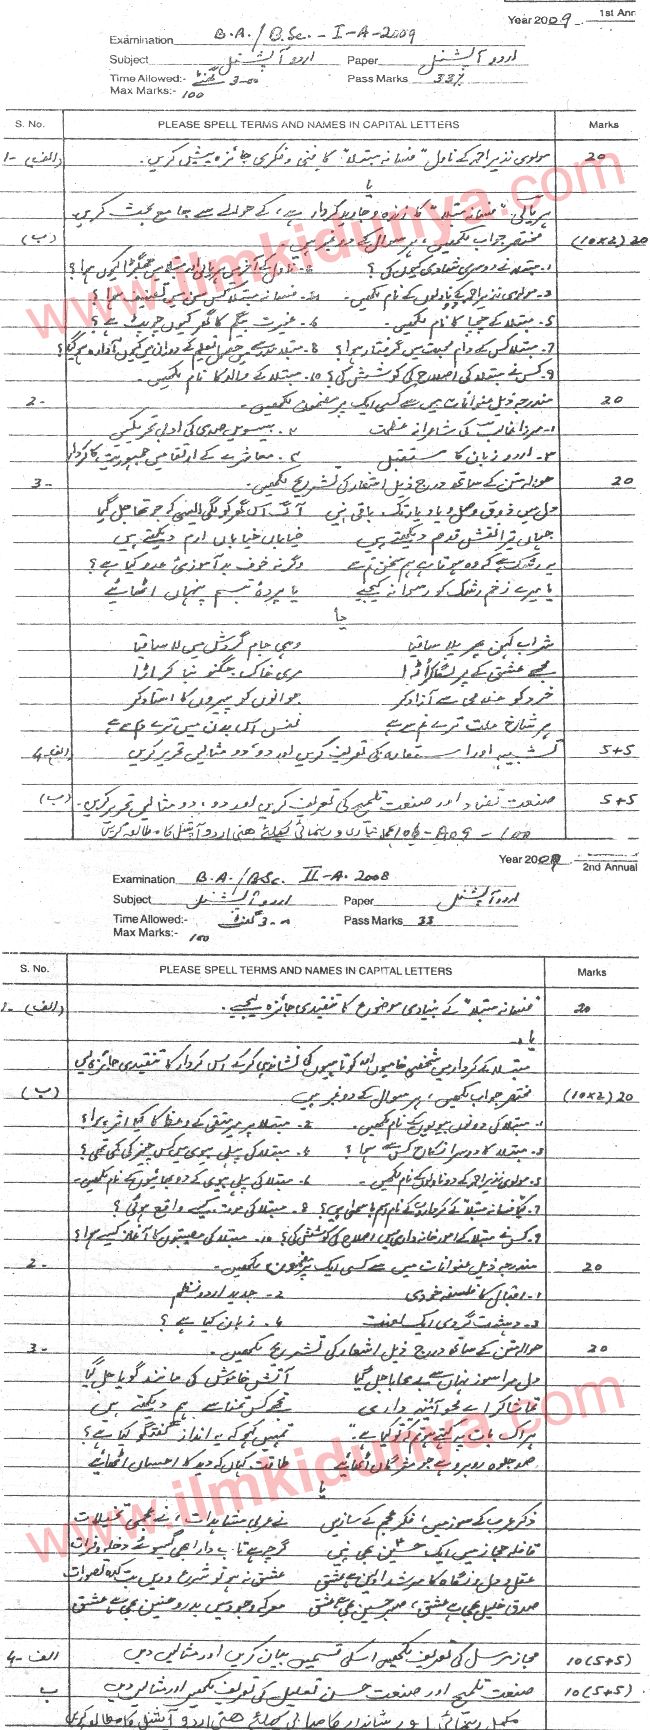 1st Ann
Year 2009
Examination B.A./B.Sc. - I-A-2009
Subject اردو آپشنل Paper اردو آپشنل
Time Allowed:- 3-00 گھنٹے Pass Marks 33%
Max Marks:- 100
S. No. PLEASE SPELL TERMS AND NAMES IN CAPITAL LETTERS Marks
1- (الف) مولوی نذیر احمد کے ناول "فسانہ مبتلا" کا فنی و فکری جائزہ پیش کریں۔ 20
یا
ہریالی "فسانہ مبتلا" کا زندہ و جاوید کردار ہے، کے حوالے سے جامع بحث کریں
(ب) مختصر جواب لکھیں، ہر سوال کے دو نمبر ہیں (10x2) 20
1۔ مبتلا نے دوسری شادی کیوں کی؟ 2۔ ناول کے آخر میں ہریالی اور مبتلا میں جھگڑا کیوں ہوا؟
3۔ مولوی نذیر احمد کے ناولوں کے نام لکھیں۔ 4۔ فسانہ مبتلا کس سن میں تصنیف ہوا؟
5۔ مبتلا کے چچا کا نام لکھیں۔ 6۔ غیرت بیگم کا گھر کیوں چوپٹ ہے؟
7۔ مبتلا کس کے دام محبت میں گرفتار ہوا؟ 8۔ مبتلا مدرسے میں حصول تعلیم کے دوران میں کیوں آوارہ ہو گیا؟
9۔ کس نے مبتلا کی اصلاح کی کوشش کی؟ 10۔ مبتلا کے والد کا نام لکھیں۔
2- مندرجہ ذیل عنوانات میں سے کسی ایک پر مضمون لکھیں۔ 20
1۔ مرزا غالب کی شاعرانہ عظمت 2۔ بیسویں صدی کی ادبی تحریکیں
3۔ اردو زبان کا مستقبل 4۔ معاشرے کے ارتقا میں جمہوریت کا کردار
3- حوالہ متن کے ساتھ درج ذیل اشعار کی تشریح لکھیں۔ 20
دل میں ذوق وصل و یاد یار تک باقی نہیں آگ اس گھر کو لگی ایسی کہ جو تھا جل گیا
جہاں تیرا نقش قدم دیکھتے ہیں خیاباں خیاباں ارم دیکھتے ہیں
یہ رشک ہے کہ وہ ہوتا ہے ہم سخن تم سے وگرنہ خوف بد آموزئ عدو کیا ہے؟
یا میرے زخم رشک کو رسوا نہ کیجیے یا پردہ تبسم پنہاں اٹھائیے
یا
شراب کہن پھر پلا ساقیا وہی جام گردش میں لا ساقیا
مجھے عشق کے پر لگا کر اڑا مری خاک جگنو بنا کر اڑا
خرد کو غلامی سے آزاد کر جوانوں کو پیروں کا استاد کر
ہری شاخ ملت ترے نم سے ہے نفس اس بدن میں ترے دم سے ہے
4- الف) تشبیہ اور استعارہ کی تعریف کریں اور دو، دو مثالیں تحریر کریں 5+5
(ب) صنعت تضاد اور صنعت تلمیح کی تعریف کریں اور دو، دو مثالیں تحریر کریں۔ 5+5
106-A09-100
Year 2008 2nd Annual
Examination B.A./B.Sc. II-A-2008
Subject اردو آپشنل Paper اردو آپشنل
Time Allowed:- 3-00 گھنٹے Pass Marks 33
Max Marks:- 100
S. No. PLEASE SPELL TERMS AND NAMES IN CAPITAL LETTERS Marks
1- (الف) "فسانہ مبتلا" کے بنیادی موضوع کا تنقیدی جائزہ لیجیے۔ 20
یا
مبتلا کے کردار میں شخصی خامیوں اور کوتاہیوں کی نشاندہی کرکے اس کردار کا تنقیدی جائزہ لیں
(ب) مختصر جواب لکھیں، ہر سوال کے دو نمبر ہیں (10x2) 20
1۔ مبتلا کی دونوں بیویوں کے نام لکھیں۔ 2۔ مبتلا پر میر متقی کے وعظ کا کیا اثر ہوا؟
3۔ مبتلا کا دوسرا نکاح کس سے ہوا؟ 4۔ مبتلا کی پہلی بیوی میں کس چیز کی کمی تھی؟
5۔ مولوی نذیر احمد کے دو ناولوں کے نام لکھیں۔ 6۔ مبتلا کی پہلی بیوی کے دو بھائیوں کے نام لکھیں۔
7۔ کیا فسانہ مبتلا کے کرداروں کے نام اسم بامسمی ہیں؟ 8۔ مبتلا کی موت کیسے واقع ہوئی؟
9۔ کس نے مبتلا کے امور خانہ داری میں اصلاح کی کوشش کی؟ 10۔ مبتلا کی مصیبتوں کا آغاز کیسے ہوا؟
2- مندرجہ ذیل عنوانات میں سے کسی ایک پر مضمون لکھیں۔ 20
1۔ اقبال کا فلسفہ خودی 2۔ جدید اردو نظم
3۔ دہشت گردی ایک لعنت 4۔ زبان کیا ہے؟
3- حوالہ متن کے ساتھ درج ذیل اشعار کی تشریح لکھیں۔ 20
دل مرا سوز نہاں سے بے محابا جل گیا آتش خاموش کی مانند گویا جل گیا
تماشا کر اے محو آئینہ داری تجھے کس تمنا سے ہم دیکھتے ہیں
ہر اک بات پہ کہتے ہو تم کہ تو کیا ہے" تمہیں کہو کہ یہ انداز گفتگو کیا ہے؟
صد جلوہ روبرو ہے جو مژگاں اٹھائیے طاقت کہاں کہ دید کا احساں اٹھائیے
یا
ذکر عرب کے سوز میں، فکر عجم کے ساز میں نے عربی مشاہدات، نے عجمی تخیلات
قافلہ حجاز میں ایک حسین بھی نہیں گرچہ ہے تاب دار ابھی گیسوئے دجلہ و فرات
عقل و دل و نگاہ کا مرشد اولیں ہے عشق عشق نہ ہو تو شرع و دیں بت کدہ تصورات
صدق خلیل بھی ہے عشق، صبر حسین بھی ہے عشق معرکہ وجود میں بدر و حنین بھی ہے عشق
4- الف مجاز مرسل کی تعریف لکھیں اسکی قسمیں بیان کریں اور مثالیں دیں 10(5+5)
ب صنعت تلمیح اور صنعت حسن تعلیل کی تعریف لکھیں اور مثالیں دیں 10(5+5)
www.ilmkidunya.com
www.ilmkidunya.com